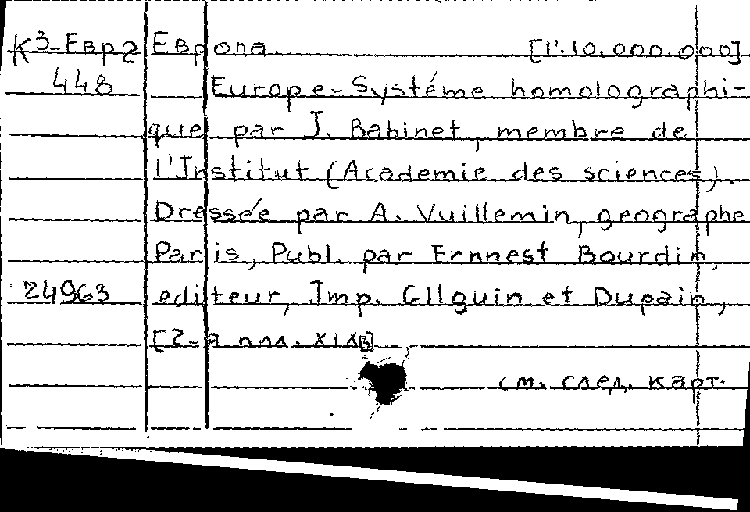 К3-Евр2 Европа [1:10.000.000]
448 Europe-Systéme homolographi-
que par J. Babinet, membre de
l'Institut (Academie des sciences).
Dressée par A. Vuillemin, geographe
Paris, Publ. par Ernnest Bourdin,
24963 editeur, Imp. Gilquin et Dupain,
[2-я пол. XIXв]
см. след. карт.